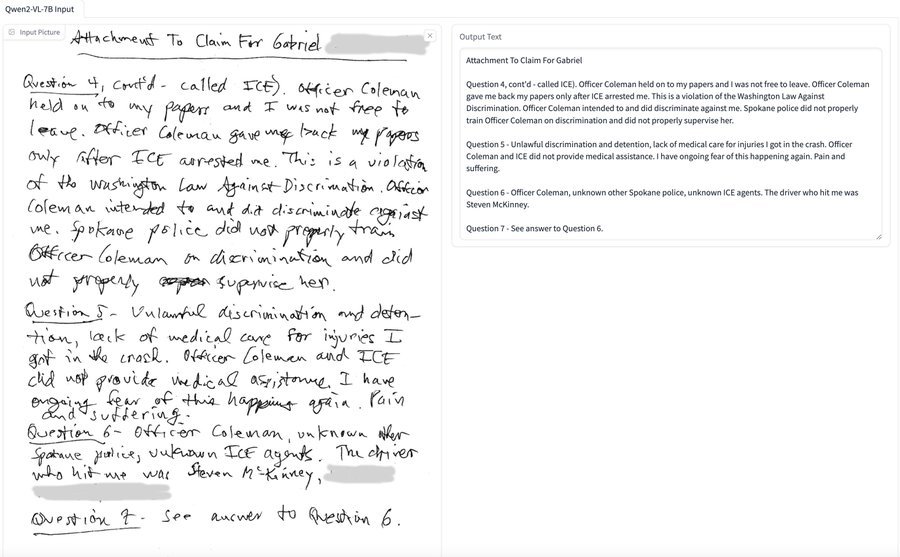 Qwen2-VL-7B Input
Input Picture
Attachment To Claim For Gabriel
Question 4, cont'd - called ICE). Officer Coleman
held on to my papers and I was not free to
leave. Officer Coleman gave me back my papers
only after ICE arrested me. This is a violation
of the Washington Law Against Discrimination. Officer
Coleman intended to and did discriminate against
me. Spokane police did not properly train
Officer Coleman on discrimination and did
not properly supervise her.
Question 5 - Unlawful discrimination and deten-
tion, lack of medical care for injuries I
got in the crash. Officer Coleman and ICE
did not provide medical assistance. I have
ongoing fear of this happening again. Pain
and suffering.
Question 6 - Officer Coleman, unknown other
Spokane police, unknown ICE agents. The driver
who hit me was Steven McKinney,
Question 7 - See answer to Question 6.
Output Text
Attachment To Claim For Gabriel
Question 4, cont'd - called ICE). Officer Coleman held on to my papers and I was not free to leave. Officer Coleman
gave me back my papers only after ICE arrested me. This is a violation of the Washington Law Against
Discrimination. Officer Coleman intended to and did discriminate against me. Spokane police did not properly
train Officer Coleman on discrimination and did not properly supervise her.
Question 5 - Unlawful discrimination and detention, lack of medical care for injuries I got in the crash. Officer
Coleman and ICE did not provide medical assistance. I have ongoing fear of this happening again. Pain and
suffering.
Question 6 - Officer Coleman, unknown other Spokane police, unknown ICE agents. The driver who hit me was
Steven McKinney.
Question 7 - See answer to Question 6.